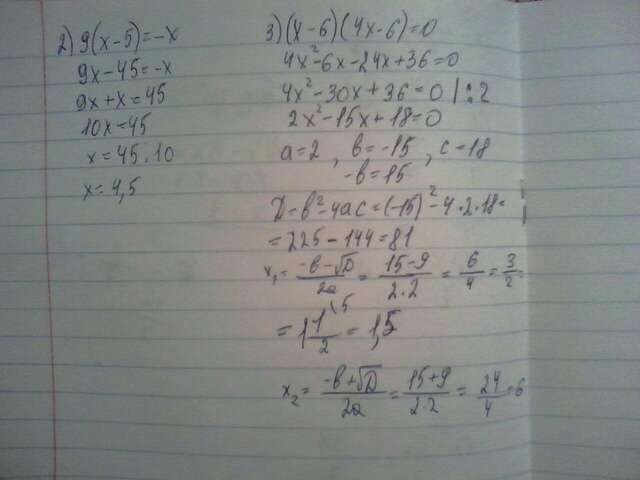 2) 9(x-5)=-x
9x-45=-x
9x+x=45
10x=45
x=45:10
x=4,5
3) (x-6)(4x-6)=0
4x²-6x-24x+36=0
4x²-30x+36=0 |:2
2x²-15x+18=0
a=2, b=-15, c=18
-b=15
D=b²-4ac=(-15)²-4·2·18=
=225-144=81
x₁=(-b-√D)/2a=(15-9)/2·2=6/4=3/2=
=1 1\5/2=1,5
x₂=(-b+√D)/2a=(15+9)/2·2=24/4=6